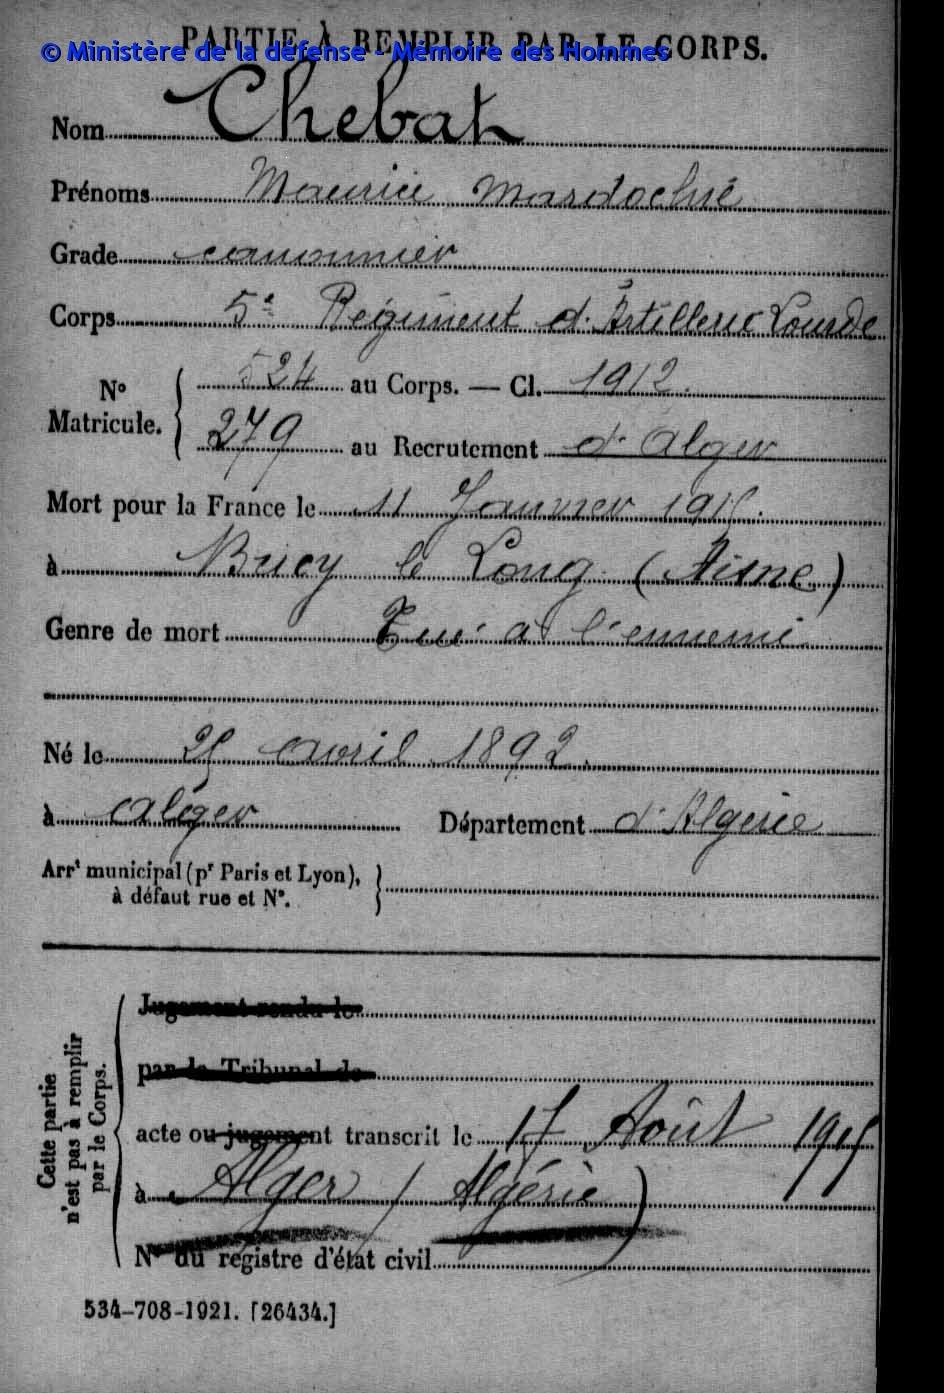 PARTIE À REMPLIR PAR LE CORPS.
© Ministère de la défense - Mémoire des Hommes
Nom Chebat
Prénoms Maurice Mardochié
Grade canonnier
Corps 5e Régiment d'Artillerie Lourde
N° Matricule. 524 au Corps. — Cl. 1912.
279 au Recrutement d'Alger
Mort pour la France le 11 Janvier 1915.
à Bucy le Long (Aisne)
Genre de mort Tué à l'ennemi
Né le 25 avril 1892.
à Alger Département d'Algérie
Arrt municipal (pr Paris et Lyon),
à défaut rue et N°.
Cette partie n'est pas à remplir par le Corps.
Jugement rendu le
par le Tribunal de
acte ou jugement transcrit le 17 Août 1915
à Alger (Algérie)
N° du registre d'état civil
534-708-1921. [26434.]